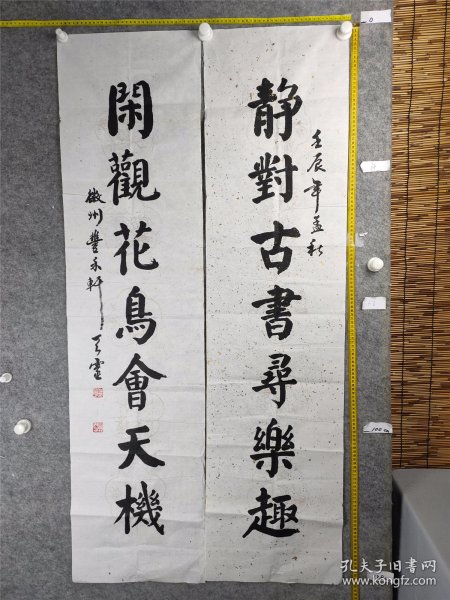 静對古書尋樂趣
壬辰年孟秋
閑觀花鳥會天機
徽州豐禾軒
0
100cm
孔夫子旧书网
www.kongfz.com